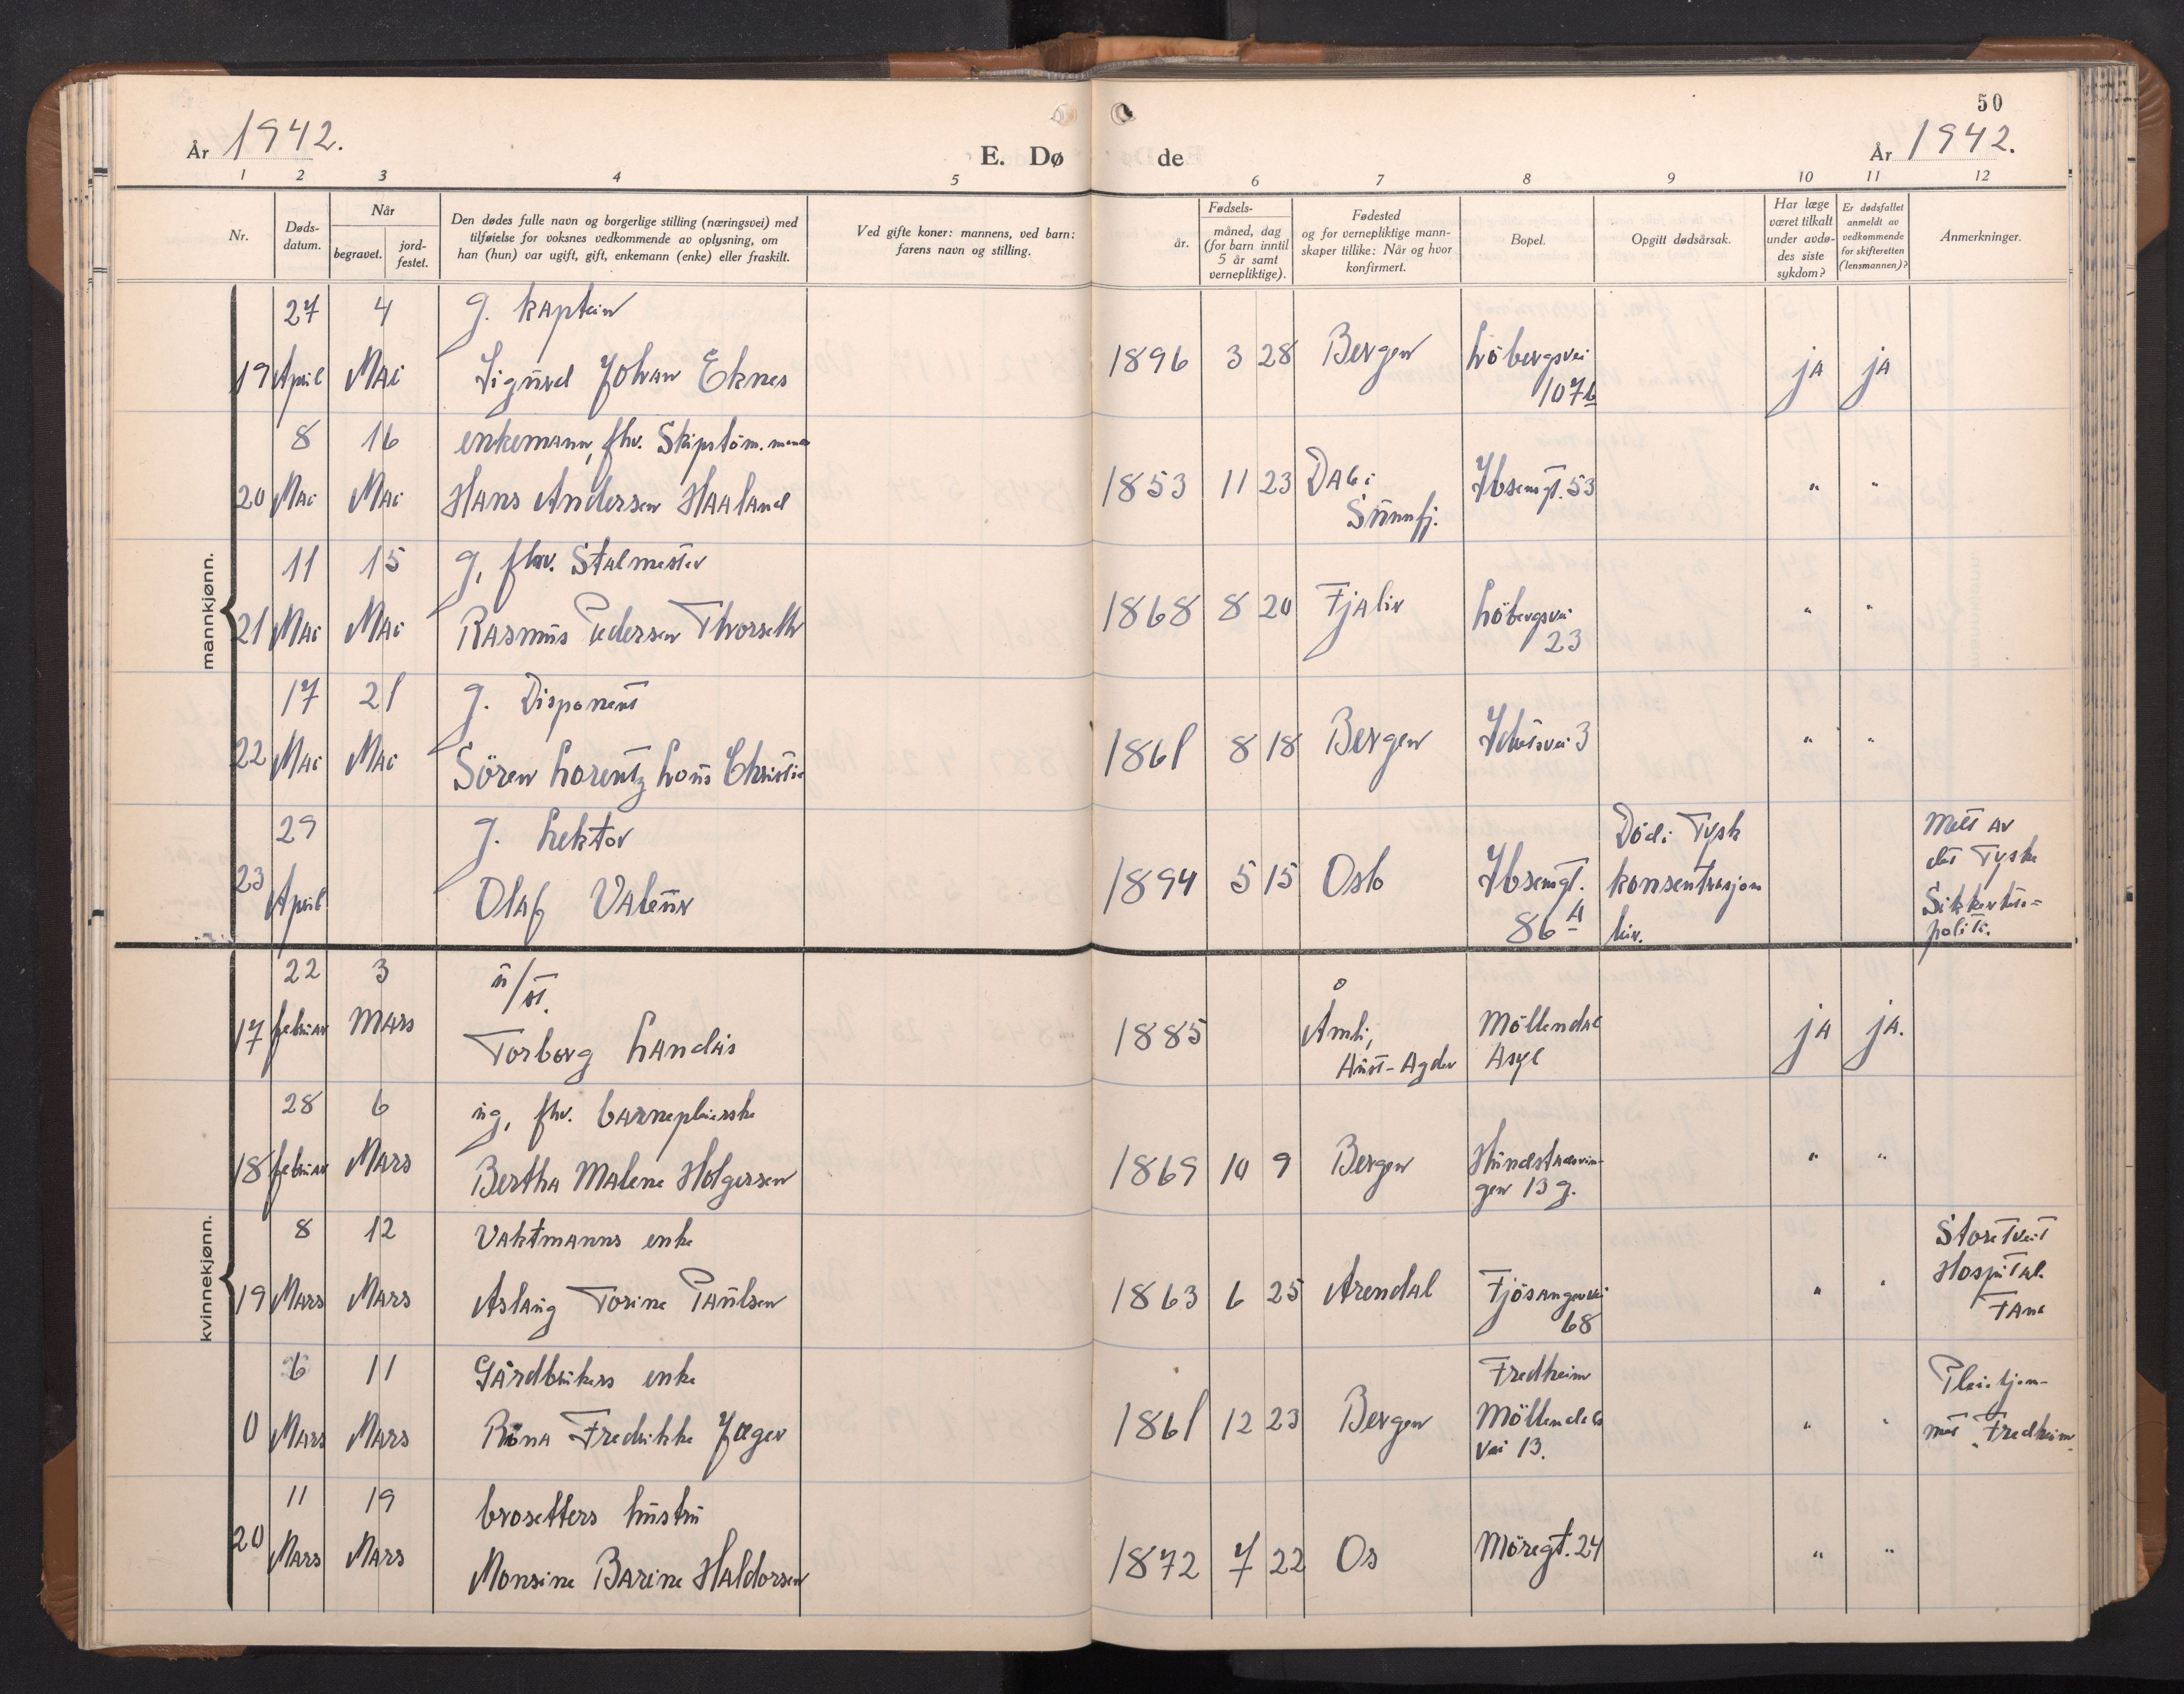 50
År 1942.
E. Dø
de
År 1942.
1 2 3 4 5 6 7 8 9 10 11 12
Nr.
Døds-
datum.
Når
begravet.
jord-
festet.
Den dødes fulle navn og borgerlige stilling (næringsvei) med
tilføielse for voksnes vedkommende av oplysning, om
han (hun) var ugift, gift, enkemann (enke) eller fraskilt.
Ved gifte koner: mannens, ved barn:
farens navn og stilling.
Fødsels-
år.
måned, dag
(for barn inntil
5 år samt
vernepliktige).
Fødested
og for vernepliktige mann-
skaper tillike: Når og hvor
konfirmert.
Bopel.
Opgitt dødsårsak.
Har læge
været tilkalt
under avdø-
des siste
sykdom?
Er dødsfallet
anmeldt av
vedkommende
for skifteretten
(lensmannen)?
Anmerkninger.
mannkjønn.
27 4 g. kaptein
19 April Mai Sigurd Johan Eknes 1896 3 28 Bergen Löbergsvei ja ja
107b
8 16 enkemann, fhv. Skipstöm.mann
20 Mai Mai Hans Andersen Haaland 1853 11 23 Dale i Ibsensgt. 53 " "
Sunnfj.
11 15 g, fhv. Stalmester
21 Mai Mai Rasmus Pedersen Thorseth 1868 8 20 Fjaler Löbergsvei " "
23
17 21 g. Disponent
22 Mai Mai Sören Lorentz Lous Christie 1861 8 18 Bergen 3 " "
29 g. Lektor Död i Tysk Melt av
det Tyske
23 April Olaf Valeur 1894 5 15 Oslo Ibsensgt. konsentrasjons Sikkerhets=
86A leir. politi.
kvinnekjønn.
22 3 u/st.
17 februar Mars Torborg Landås 1885 Åmli, Möllendal ja ja.
Aust-Agder Asyl
28 6 ug, fhv. barnepleierske
18 februar Mars Bertha Malene Holgersen 1869 10 9 Bergen Hunstadsvin- " "
gen 13 g.
8 12 Vaktmanns enke Storetveit
Hospital
19 Mars Mars Aslaug Torine Paulsen 1863 6 25 Arendal Fjösangervei " " Fana
68
6 11 Gårdbrukers enke Fredheim Pleiehjem-
0 Mars Mars Rona Fredrikke Jæger 1861 12 23 Bergen Möllendals " " met "Fredheim"
vei 13.
11 19 brosetters hustru
20 Mars Mars Monsine Barine Haldorsen 1872 7 22 Os Möregt. 24 " "